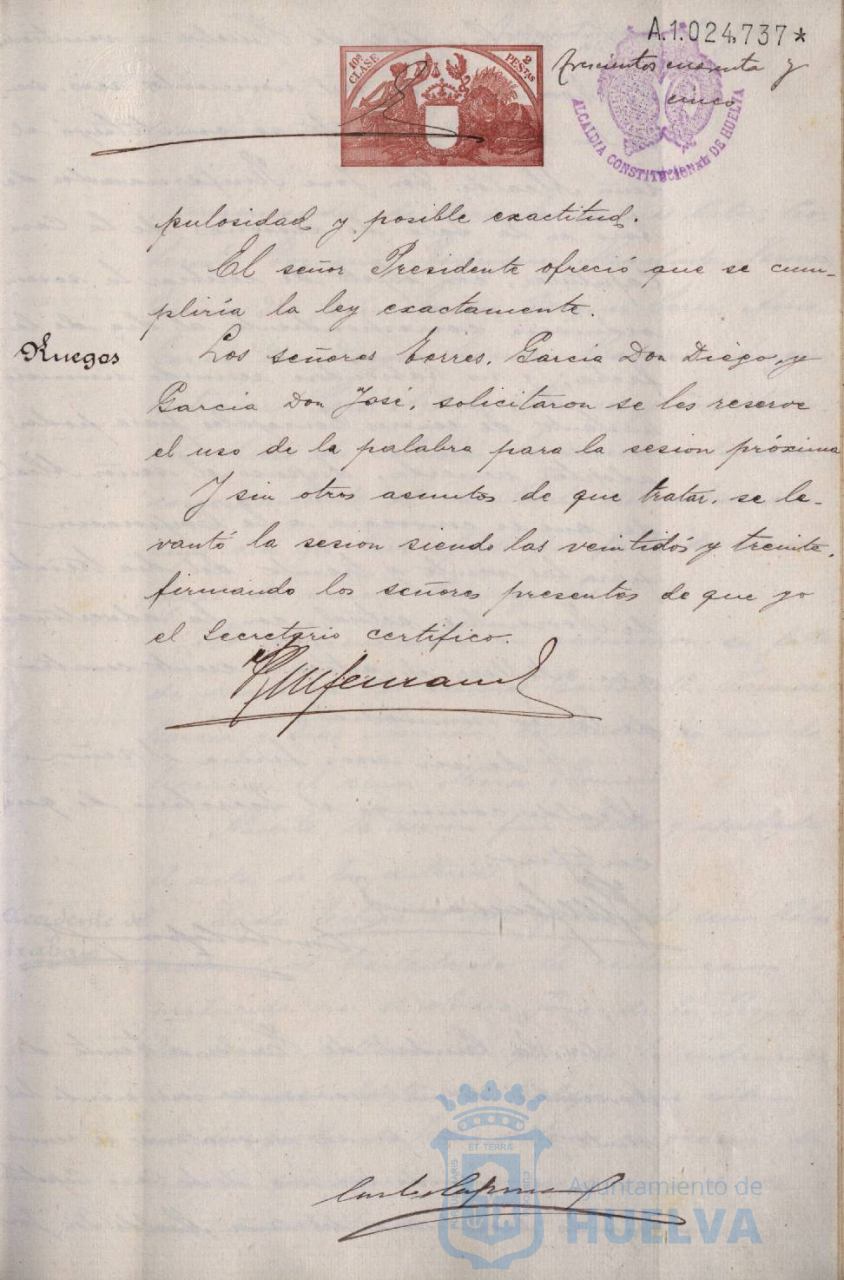 A.1.024,737*
10ª CLASE
2 PESTAS
trescientos cuarenta y
cinco
ALCALDIA CONSTITUCIONAL DE HUELVA
pulosidad y posible exactitud.
El señor Presidente ofreció que se cum-
pliría la ley exactamente.
Ruegos
Los señores Torres, García Don Diego, y
García Don José, solicitaron se les reserve
el uso de la palabra para la sesion próxima
Y sin otros asuntos de que tratar, se le-
vantó la sesion siendo las veintidós y treinta,
firmando los señores presentes de que yo
el Secretario certifico.
ET TERRA
Ayuntamiento de
HUELVA